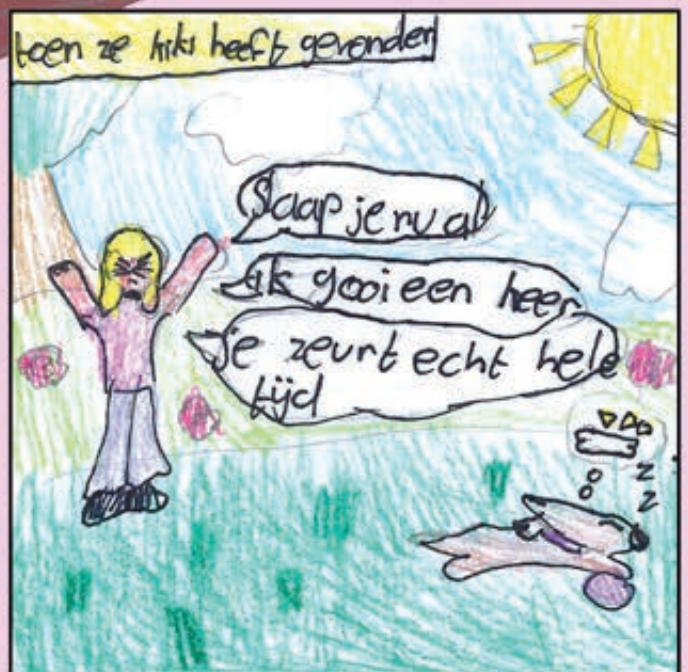 toen ze kiki heeft gevonden
Slaap je nu al
ik gooi een keer
Je zeurt echt hele
tijd
z
z